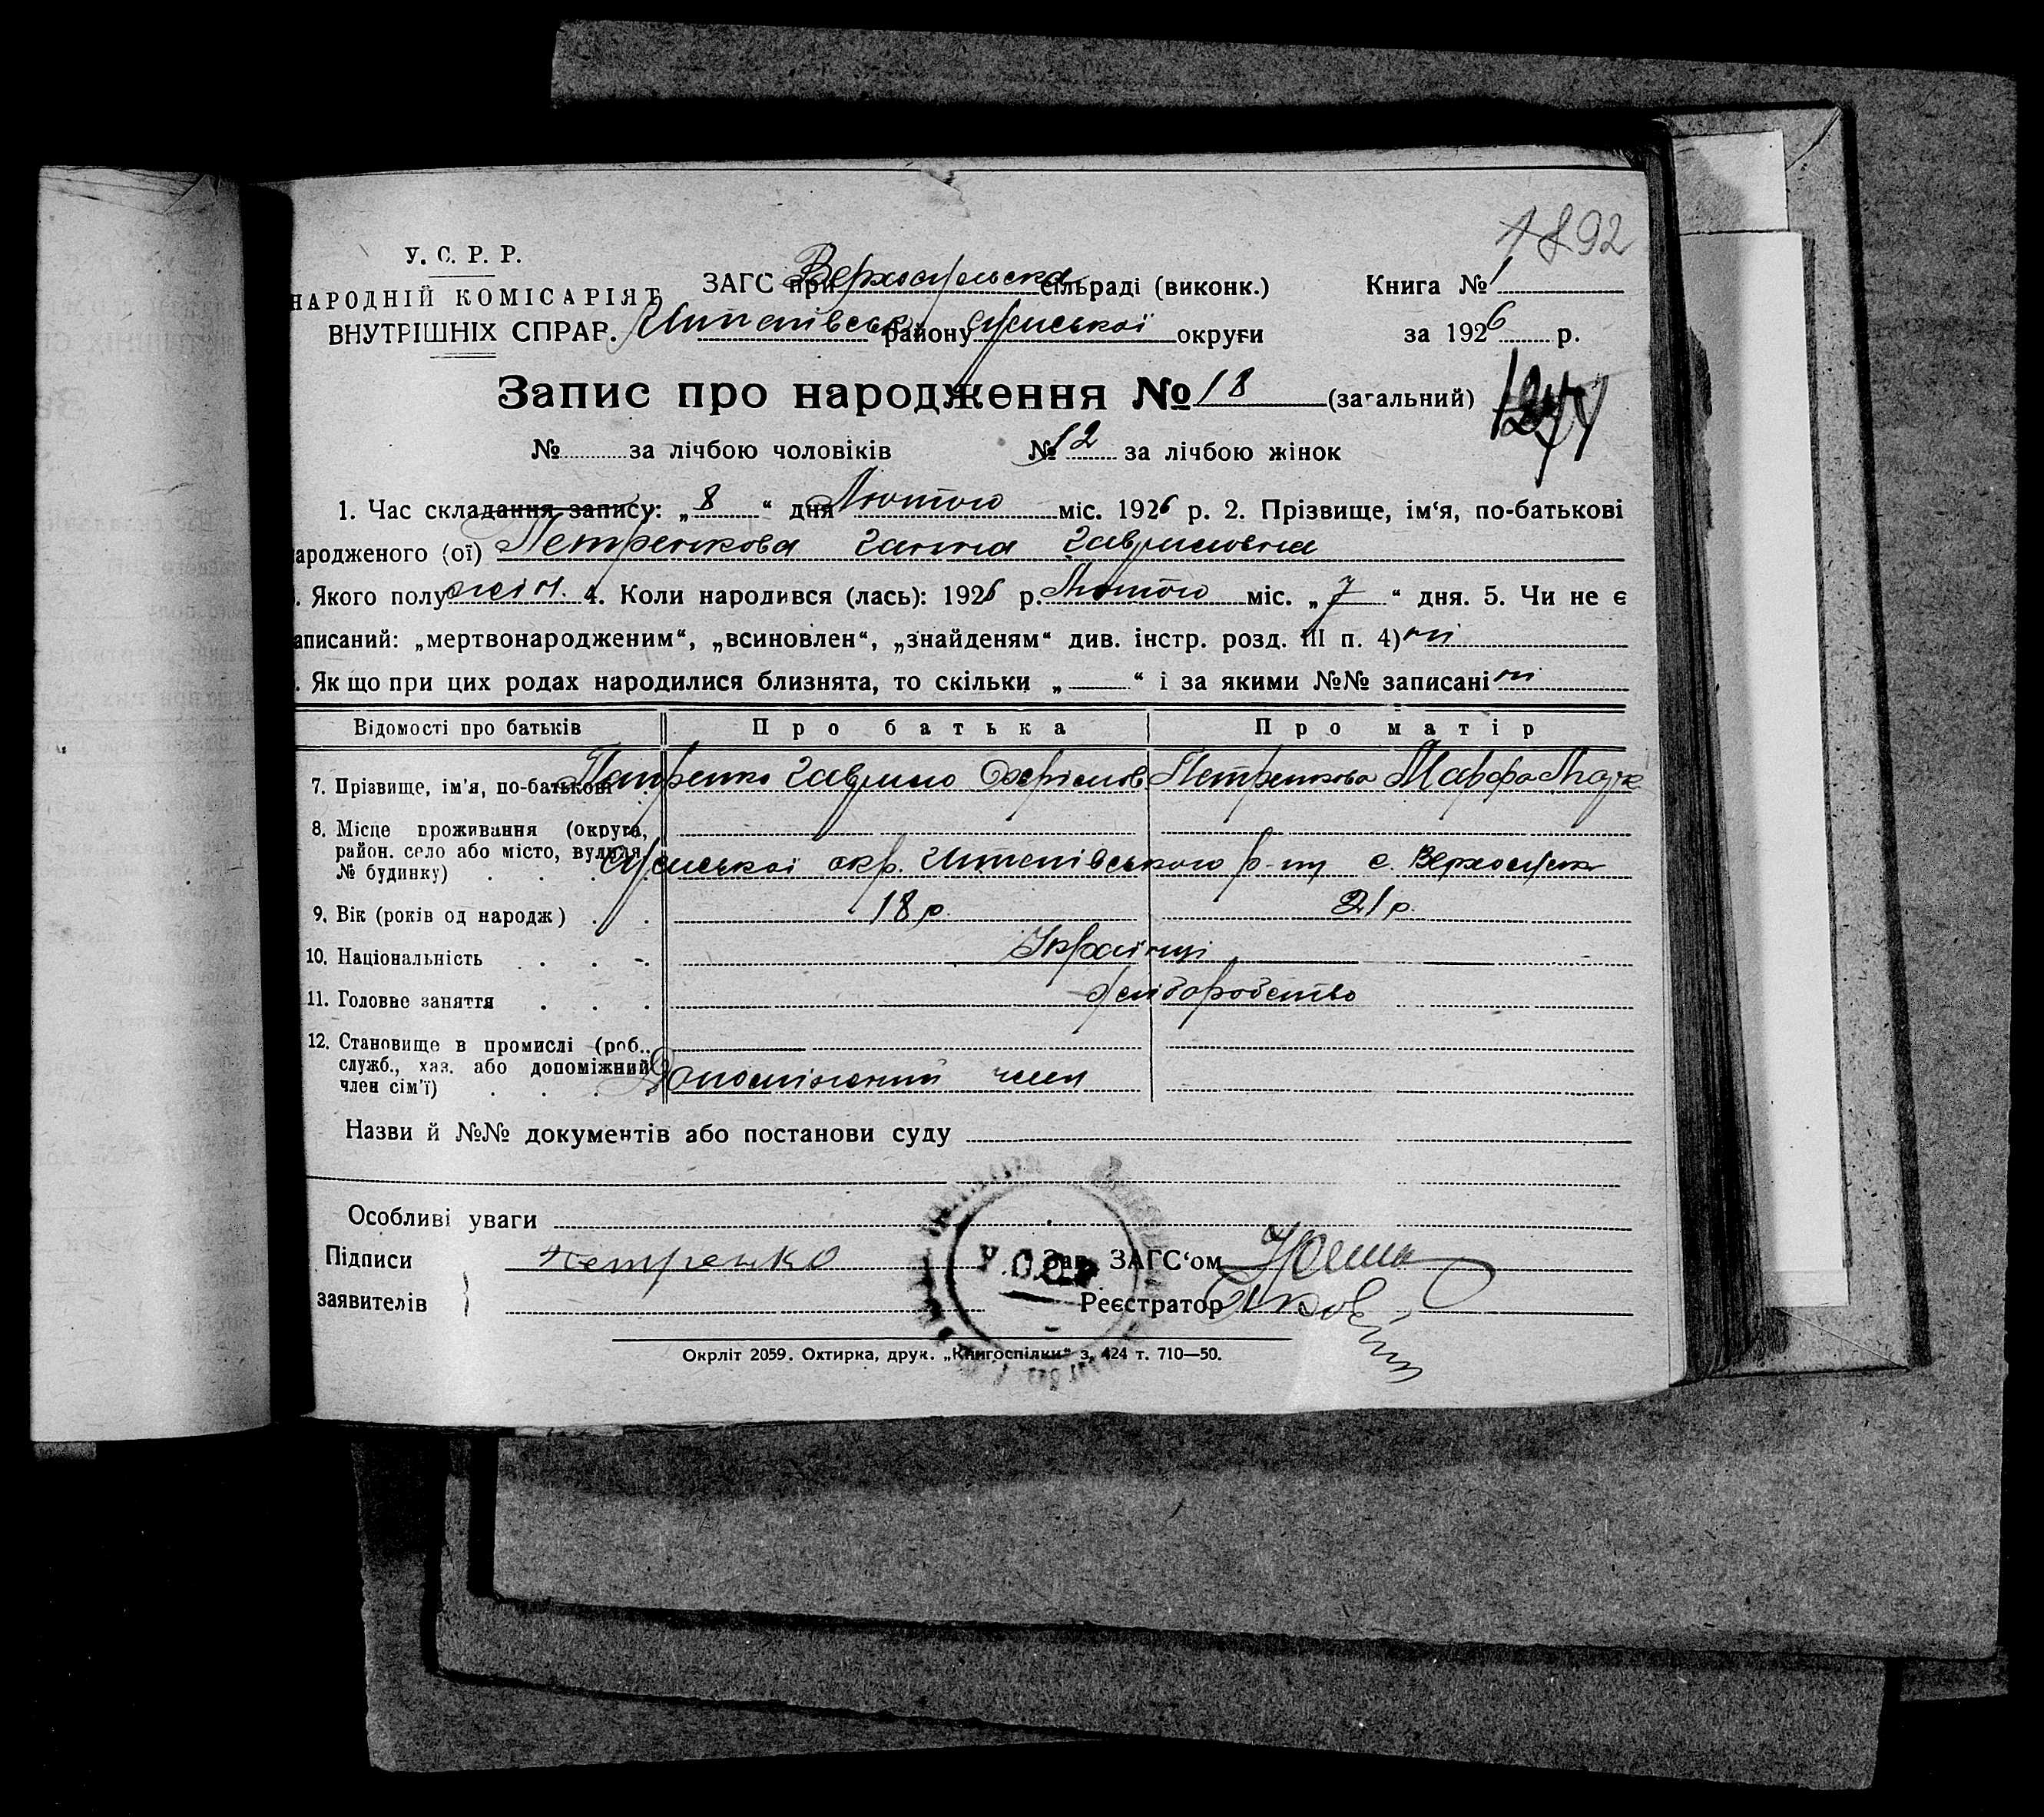 1892
У. С. Р. Р.
НАРОДНІЙ КОМІСАРІЯТ
ВНУТРІШНІХ СПРАР.
ЗАГС при Верхосульska сільраді (виконк.)
Штепівськ району Сумської округи
Книга № 1
за 1926 р.
Запис про народження № 18 (загальний)
№ за лічбою чоловіків № 12 за лічбою жінок
1. Час складання запису: „ 8 “ дня Лютого міс. 1926 р. 2. Прізвище, ім‘я, по-батькові
ародженого (ої) Петренкова Ганна Гавриловна
. Якого полу жін. 4. Коли народився (лась): 1926 р. Лютого міс. „ 7 “ дня. 5. Чи не є
аписаний: „мертвонародженим“, „всиновлен“, „знайденям“ див. інстр. розд. III п. 4) ні
. Якщо при цих родах народилися близнята, то скільки „ — “ і за якими №№ записані ні
Відомості про батьків Про батька Про матір
7. Прізвище, ім'я, по-батькові Петренко Гаврило Петренкова Марфа
8. Місце проживання (округа,
район. село або місто, вулиця,
№ будинку) Сумської окр. Штепівського р-ну с. Верхосулк
9. Вік (років од народж) 18 р. 21 р.
10. Національність Українці
11. Головне заняття Хліборобство
12. Становище в промислі (роб.,
служб., хаз. або допоміжний
член сім'ї) Допоміжний член
Назви й №№ документів або постанови суду
Особливі уваги
Підписи Петренко Зав. ЗАГС‘ом
заявителів Реєстратор
У.С.С.Р.
Окрліт 2059. Охтирка, друк. „Книгоспілки“ з. 424 т. 710—50.